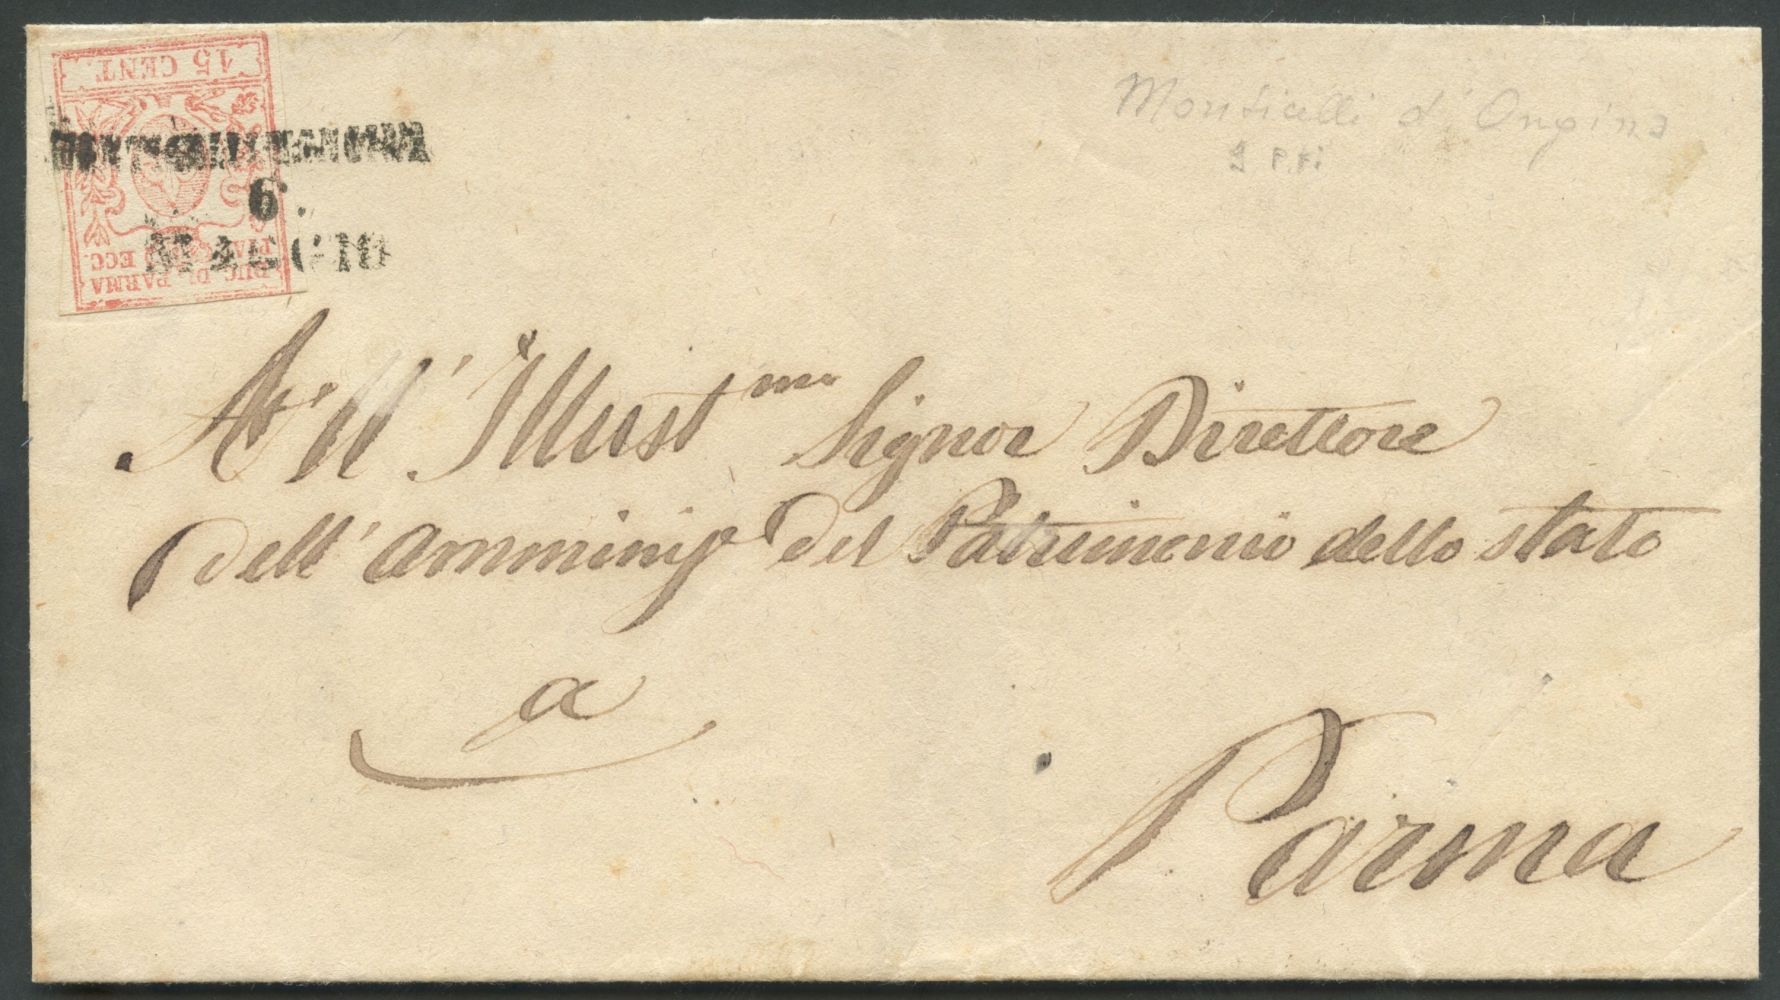 15 CENT.
DUC. DI PARMA
PIAC. ECC.
6
MAGGIO
Monticelli d'Ongina
9 P.ti
All' Illust.mo Signor Direttore
dell' Amminis.e Del Patrimonio dello Stato
a
Parma